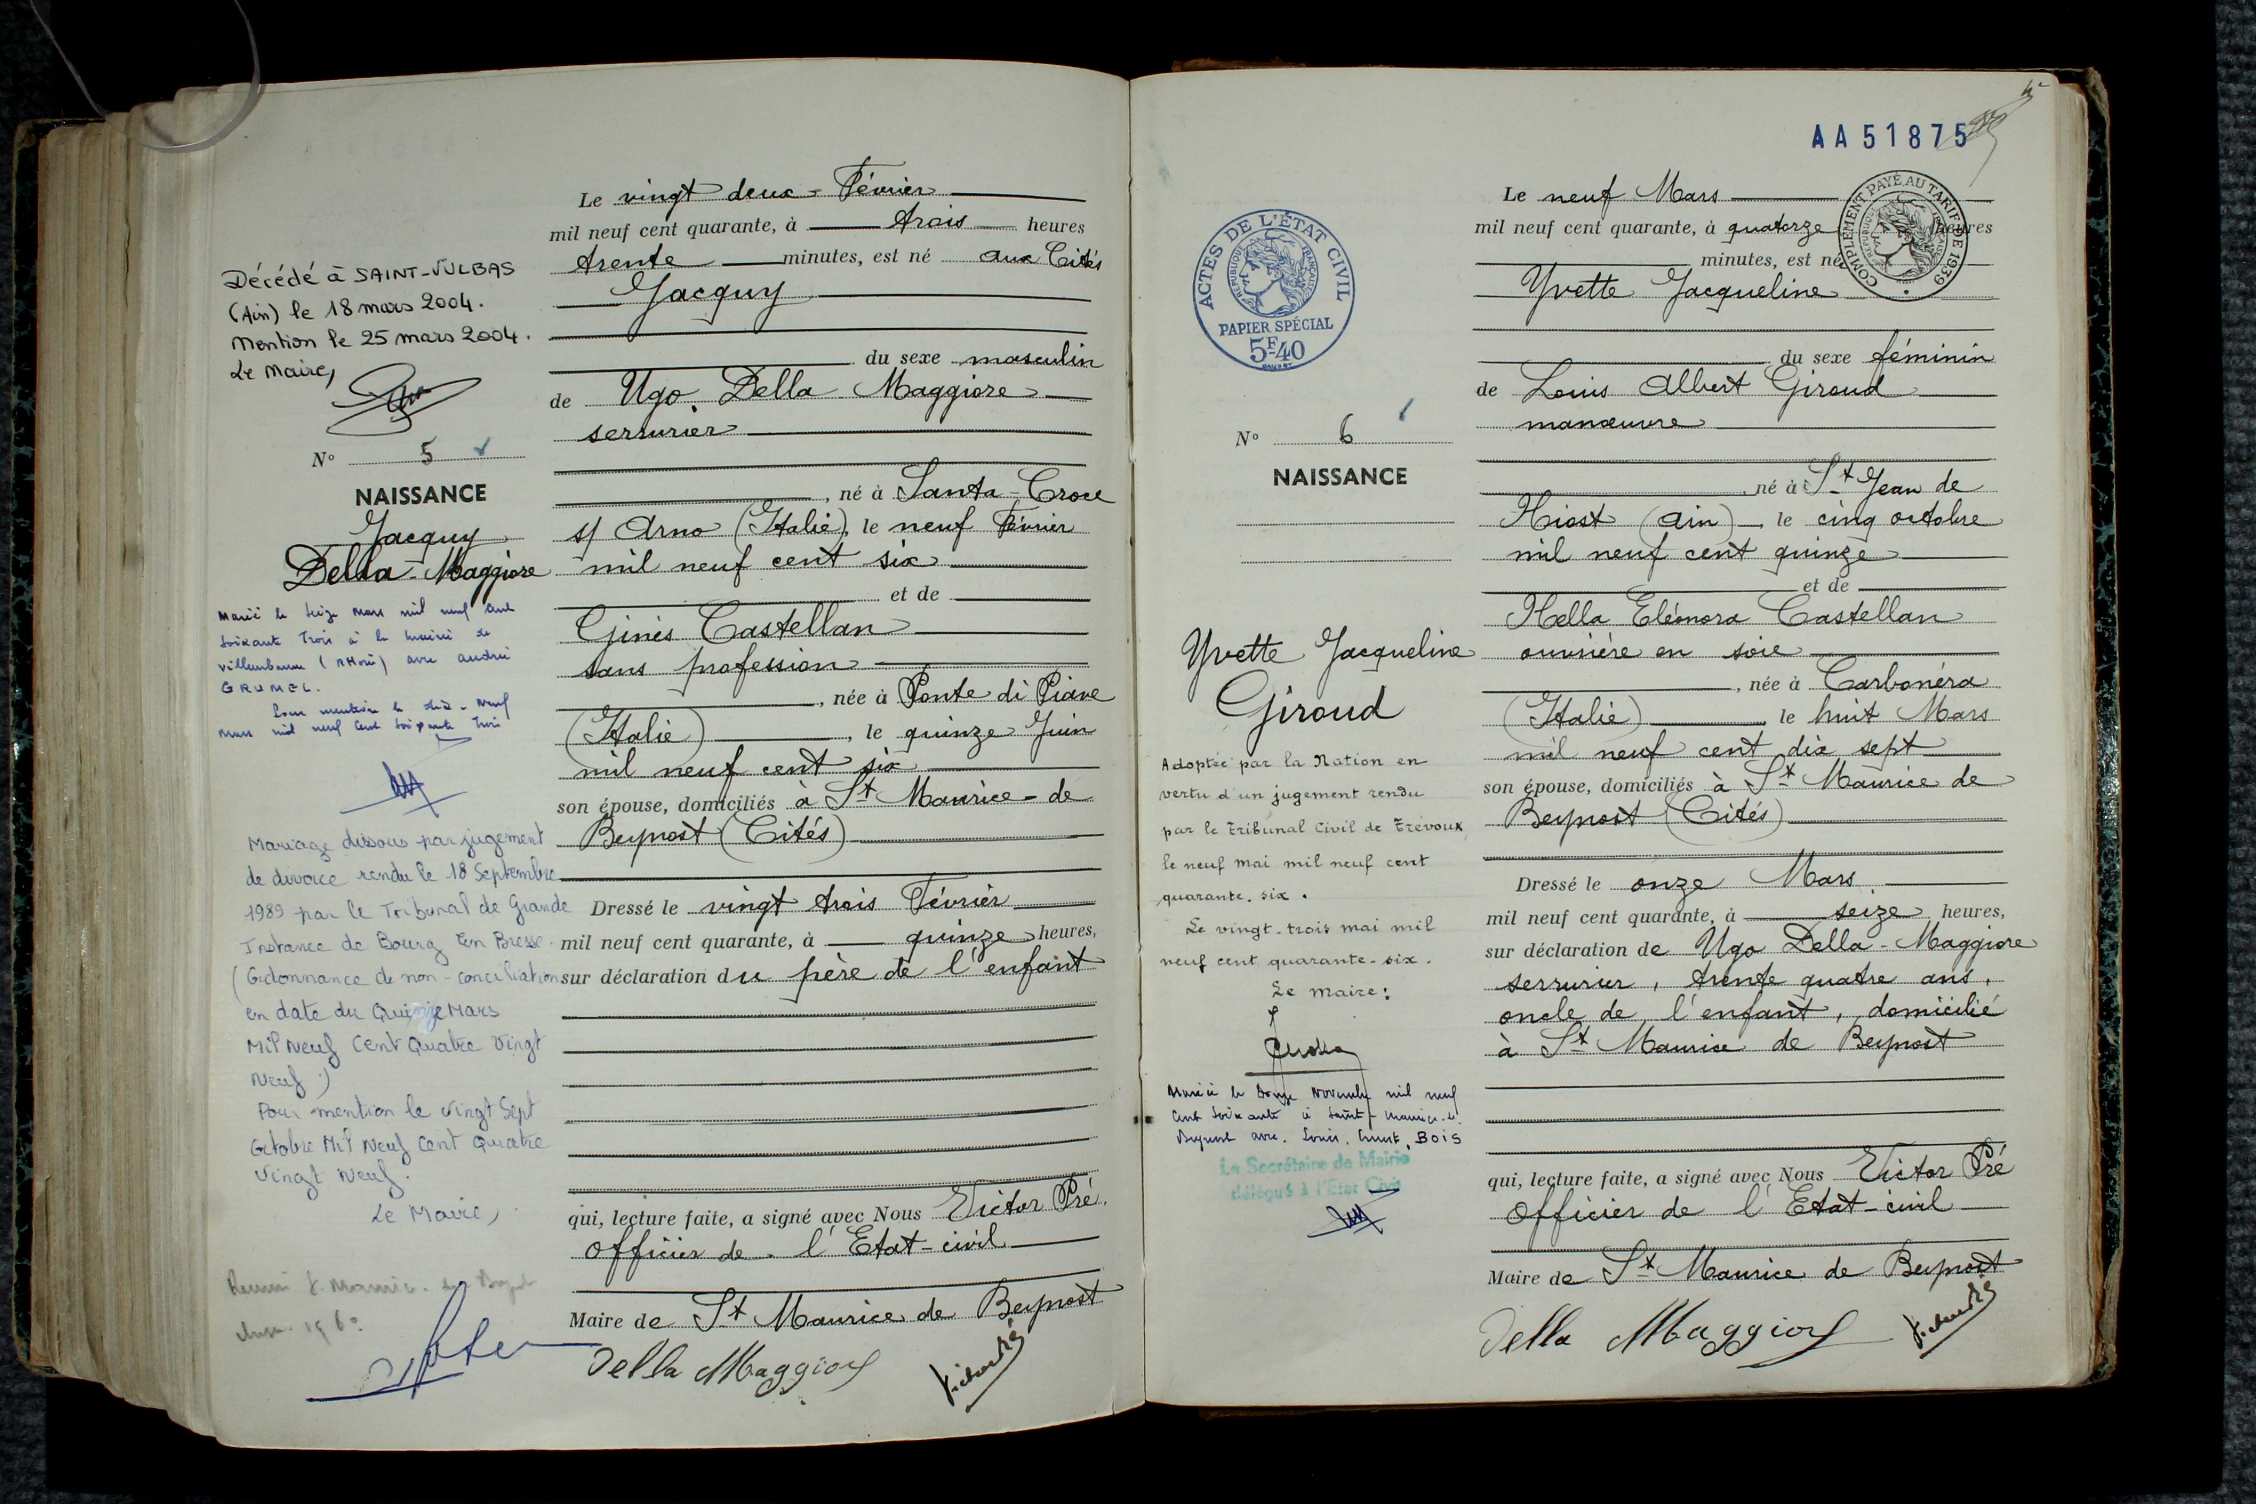 Décédé à SAINT-VULBAS
(Ain) le 18 mars 2004.
Mention le 25 mars 2004.
Le Maire,
N° 5
NAISSANCE
Jacquy
Della-Maggiore
Marié le seize Mars mil neuf cent
soixante trois à la mairie de
Villeurbanne (Rhône) avec Andrée
GRUMEL.
Pour mention le dix-neuf
Mars mil neuf cent soixante trois
Mariage dissous par jugement
de divorce rendu le 18 Septembre
1989 par le Tribunal de Grande
Instance de Bourg en Bresse.
(Ordonnance de non-conciliation
en date du Quinze Mars
Mil Neuf Cent Quatre Vingt
Neuf.)
Pour mention le Vingt Sept
Octobre Mil Neuf Cent Quatre
Vingt Neuf.
Le Maire,
Le vingt deux - Février
mil neuf cent quarante, à trois heures
trente minutes, est né aux Cités
Jacquy
du sexe masculin
de Ugo Della Maggiore
serrurier
, né à Santa-Croce
s/ Arno (Italie), le neuf Février
mil neuf cent six
et de
Ginès Castellan
sans profession
, née à Ponte di Piave
(Italie), le quinze Juin
mil neuf cent six
son épouse, domiciliés à St Maurice-de
Beynost (Cités)
Dressé le vingt trois Février
mil neuf cent quarante, à quinze heures,
sur déclaration du père de l'enfant
qui, lecture faite, a signé avec Nous Victor Pré.
officier de l'Etat-civil
Maire de St Maurice de Beynost
Della Maggiore
AA51875
ACTES DE L'ÉTAT CIVIL
RÉPUBLIQUE FRANÇAISE
PAPIER SPÉCIAL
5F40
COMPLÉMENT PAYÉ AU TARIF DE 1939
N° 6
NAISSANCE
Yvette Jacqueline
Giroud
Adoptée par la Nation en
vertu d'un jugement rendu
par le Tribunal Civil de Trévoux
le neuf mai mil neuf cent
quarante-six.
Le vingt-trois mai mil
neuf cent quarante-six.
Le maire:
Mariée le Douze Novembre mil neuf
cent soixante à Saint-Maurice-de-
Beynost avec Louis BOIS
Le Secrétaire de Mairie
délégué à l'Etat Civil
Le neuf Mars
mil neuf cent quarante, à quatorze heures
minutes, est né
Yvette Jacqueline
du sexe féminin
de Louis Albert Giroud
manœuvre
né à St Jean de
Niost (Ain), le cinq octobre
mil neuf cent quinze
et de
Nella Eléonora Castellan
ouvrière en soie
, née à Carbonéra
(Italie) le huit Mars
mil neuf cent dix sept
son épouse, domiciliés à St Maurice de
Beynost (Cités)
Dressé le onze Mars
mil neuf cent quarante, à seize heures,
sur déclaration de Ugo Della-Maggiore
serrurier, trente quatre ans,
oncle de l'enfant, domicilié
à St Maurice de Beynost
qui, lecture faite, a signé avec Nous Victor Pré
officier de l'Etat-civil
Maire de St Maurice de Beynost
Della Maggiore